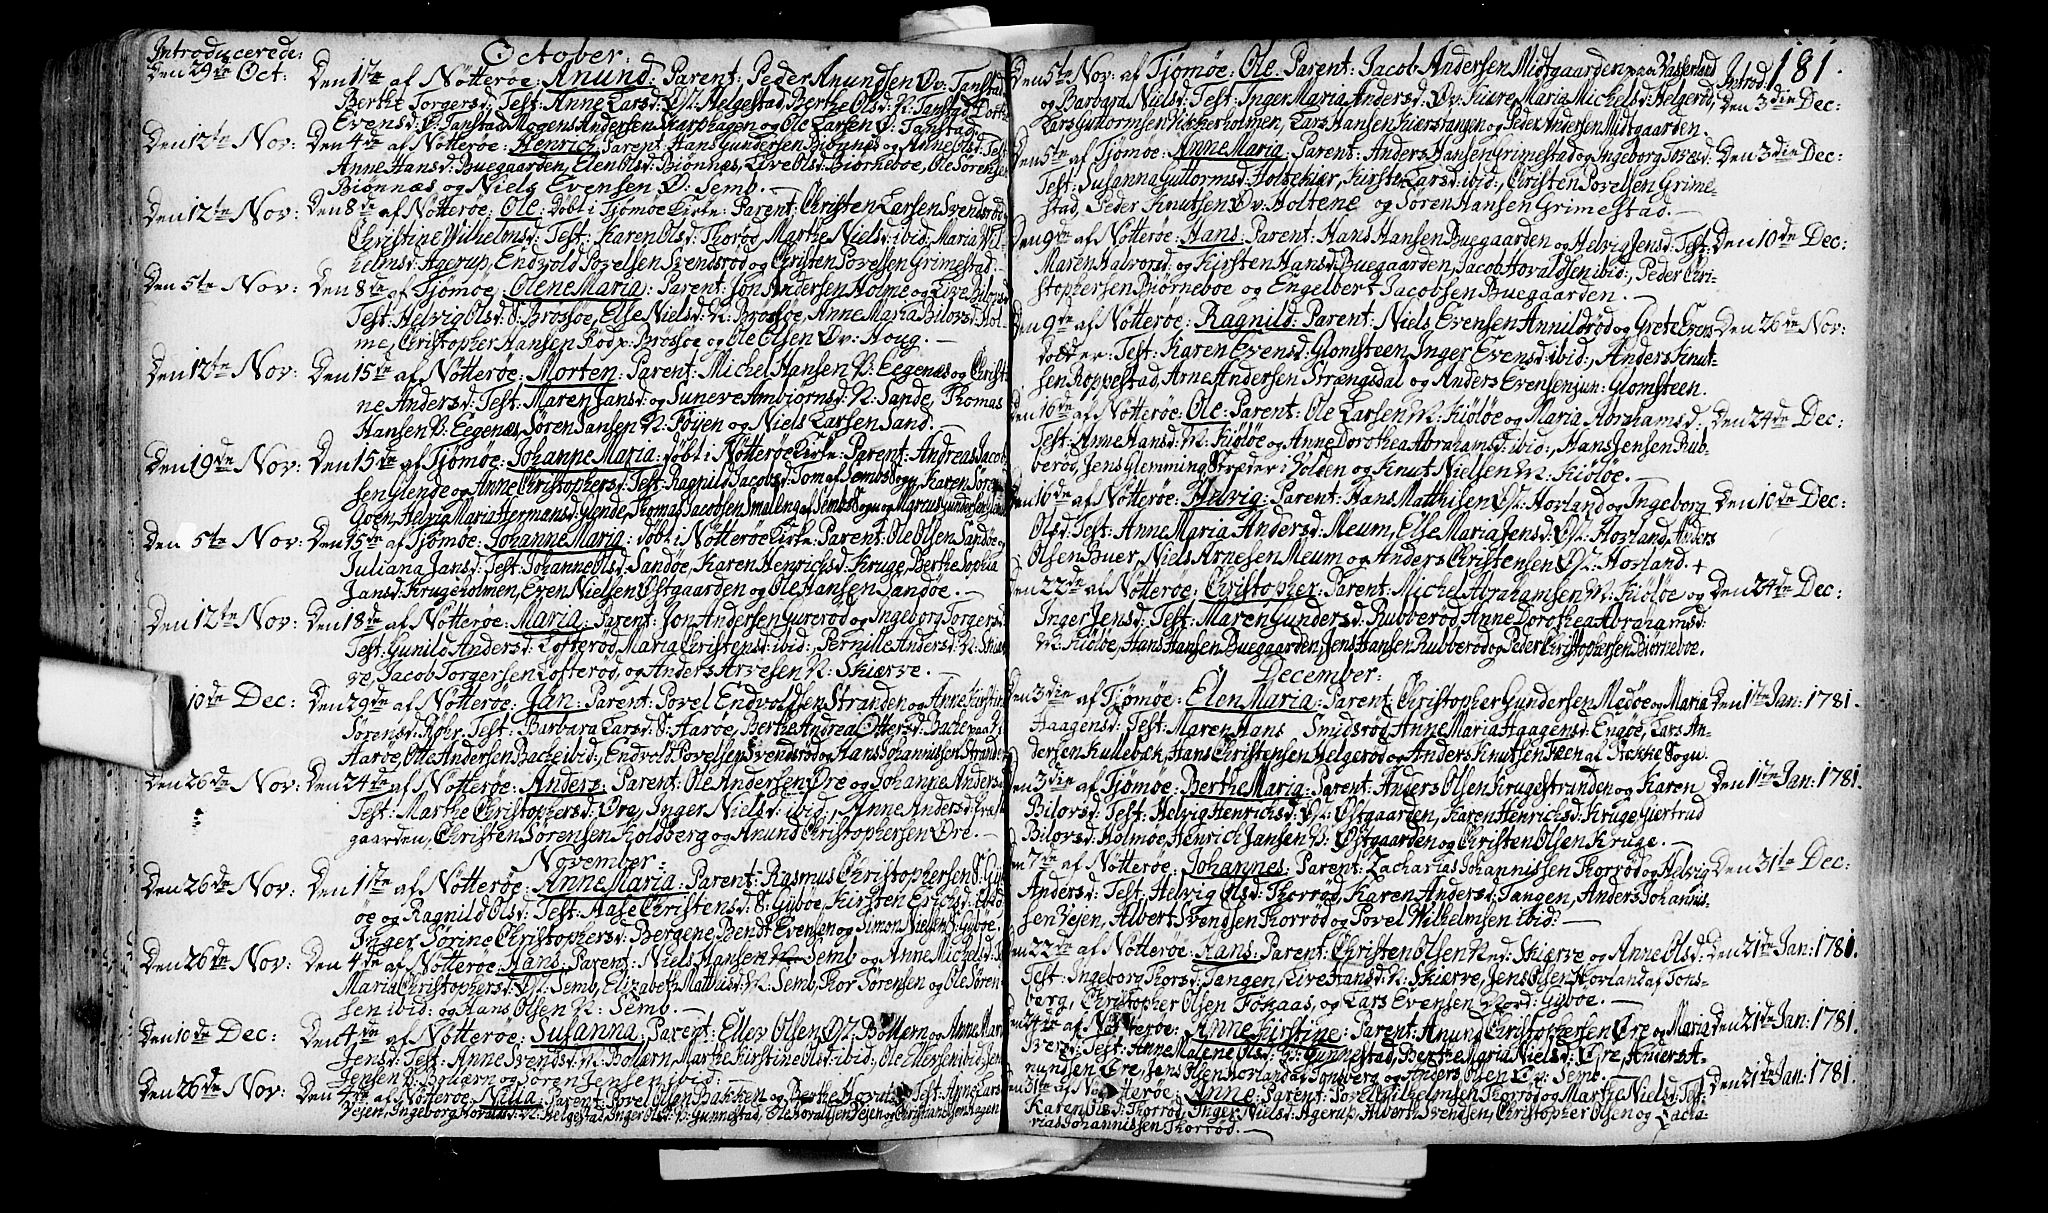 Introducerede:
October:
Den 29de Oct: Den 1ste af Nötterøe: Anund: Parent: Peder Anundsen Øv: Tanstad
Berthe Torgersd: Test: Anne Larsd: Øv: Helgestad, Berthe Olsd: N: Tanstad, Dorthe
Evensd: Ø: Tanstad, Mogens Andersen Skarphagen og Ole Larsen Ø: Tanstad.
Den 12te Nov: Den 4de af Nötterøe: Henrich: Parent: Hans Gundersen Biönnes og Anne Olsd: Test:
Anne Hansd: Buegaarden, Elen Olsd: Biönnæs, Live Olsd: Biörneboe, Ole Sörensen
Biönnæs og Niels Evensen Ø: Semb. —
Den 12te Nov: Den 8de af Nötterøe: Ole: döbt i Tjömöe Kirke: Parent: Christen Larsen Svendsröd
Christine Wilhelmsd: Test: Karen Olsd: Thoröd, Marthe Nielsd: ibid: Maria Wil-
helmsd: Agerup, Endvold Povelsen Svendsröd og Christen Povelsen Grimestad.
Den 5te Nov: Den 8de af Tjömöe: Olene Maria: Parent: Jon Andersen Holme og Live Bilovsd
Test: Helvig Olsd: S: Brösöe, Else Nielsd: N: Brösöe, Anne Maria Bilovsd: Hol-
me, Christopher Hansen Kod p: Brösöe og Ole Olsen Øv: Houg. —
Den 12te Nov: Den 15de af Nötterøe: Morten: Parent: Michel Hansen N: Eegenæs og Christi-
ne Andersd: Test: Maren Jansd: og Suneve Ambiornsd: N: Sande, Thomas
Hansen N: Eegenæs, Sören Jansen N: Föyen og Niels Larsen Sand. —
Den 19de Nov: Den 15de af Tjömöe: Johanne Maria: döbt i Nötterøe Kirke: Parent: Andreas Jacob-
sen Glende og Anne Christophersd: Test: Ragnild Jacobsd: Tom af Sembs Sogn, Karen Sörensd:
Goen, Helvig Maria Hermansd: Glende, Thomas Jacobsen Smaleng af Sembs Sogn og Marcus Gundersen
Den 5te Nov: Den 15de af Tjömöe: Johanne Maria: döbt i Nötterøe Kirke: Parent: Ole Olsen Sandöe og
Juliana Jansd: Test: Johanne Olsd: Sandöe, Karen Henrichsd: Kruge, Berthe Sophia
Jansd: Krugeholmen, Even Nielsen Østgaarden og Ole Hansen Sandöe. —
Den 12te Nov: Den 18de af Nötterøe: Maria: Parent: Jon Andersen Gureröd og Ingeborg Torgersd:
Test: Gunild Andersd: Lofteröd, Maria Christensd: ibid:, Pernille Andersd: N: Skier-
ve, Jacob Torgersen Lofteröd, og Anders Arvesen N: Skierve. —
10de Dec: Den 29de af Nötterøe: Jan: Parent: Povel Endvoldsen Stranden og Anne Kirstine
Sörensd: Röhr, Test: Barbara Larsd: S: Aaröe, Berthe Andrea Ottersd: Bache paa N:
Aaröe, Otte Andersen Bache ibid:, Endvold Povelsen Svendsröd og Hans Johannissen Stranden
Den 26de Nov: Den 24de af Nötterøe: Anders: Parent: Ole Andersen Øre og Johanne Andersd:
Test: Marthe Christophersd: Øre, Inger Nielsd: ibid:, Anne Andersd: Præste-
gaarden, Christen Sörensen Koldberg og Anund Christophersen Øre. —
November:
Den 26de Nov: Den 1ste af Nötterøe: Anne Maria: Parent: Rasmus Christophersen S: Gyb-
öe og Ragnild Olsd: Test: Aase Christensd: S: Gyböe, Kirsten Erichsd: ibid:
Inger Sörine Christophersd: Bergene, Bendt Evensen og Simon Nielsen S: Gyböe.
Den 26de Nov: Den 4de af Nötterøe: Hans: Parent: Niels Hansen N: Semb og Anne Michelsd:
Maria Christophersd: Øv: Semb, Elizabeth Mathisd: N: Semb, Thor Sörensen og Ole Sören-
sen ibid: og Hans Olsen N: Semb. —
Den 10de Dec: Den 4de af Nötterøe: Susanna: Parent: Ellev Olsen Øv: Bollern og Anne Mar:
Jensd: Test: Anne Svendsd: N: Bollern, Marthe Kirstine Olsd: ibid:, Ole Ellevsen ibid:, Jens
Jensen N: Bruærn og Sören Jensen ibid:
Den 26de Nov: Den 4de af Nötterøe: Nilla: Parent: Povel Olsen Bakken og Berthe Test: Anne Larsd:
Vejen, Ingeborg N: Helgestad, Inger Olsd: N: Gunnestad, Ole Vejen og
181.
Introd:
Den 5te Nov: af Tjömöe: Ole: Parent: Jacob Andersen Midtgaarden paa Vasserland
og Barbara Nielsd: Test: Inger Maria Andersd: Øv: Kiære, Maria Michelsd: Helgeröd, Den 3die Dec:
Lars Guttormsen Vikkerholmen, Lars Hansen Kierstangen og Peder Andersen Midtgaarden.
Den 5te af Tjömöe: Anne Maria: Parent: Anders Hansen Grimestad og Ingeborg Toresd: Den 3die Dec:
Test: Susanna Guttormsd: Holtekiær, Kirsten Larsd: ibid:, Christen Povelsen Grime-
stad, Peder Knutsen Øv: Holtene og Sören Hansen Grimestad. —
Den 9de af Nötterøe: Hans: Parent: Hans Hansen Buegaarden og Helvig Jensd: Test: Den 10de Dec:
Maren Halvorsd: og Kirsten Hansd: Buegaarden, Jacob Hovaldsen ibid:, Peder Chri-
stophersen Biörneboe og Engelbert Jacobsen Buegaarden. —
Den 9de af Nötterøe: Ragnild: Parent: Niels Evensen Annildröd og Grete Evens Den 26de Nov:
datter: Test: Karen Evensd: Glomsteen, Inger Evensd: ibid:, Anders Knut-
sen Roppestad, Arne Andersen Strængsdal og Anders Evensen jun: Glomsteen.
Den 16de af Nötterøe: Ole: Parent: Ole Larsen N: Kiölöe og Maria Abrahamsd: Den 24de Dec:
Test: Anne Hansd: N: Kiölöe og Anne Dorothea Abrahamsd: ibid:, Hans Jensen Rub-
beröd, Jens Glemming Stræder i Holten og Knut Nielsen N: Kiölöe. —
Den 16de af Nötterøe: Helvig: Parent: Hans Matthisen Øv: Horland og Ingeborg Den 10de Dec:
Olsd: Test: Anne Maria Andersd: Meum, Else Maria Jensd: Øv: Horland, Anders
Olsen Buer, Niels Arnesen Meum og Anders Christensen Øv: Horland. +
Den 22de af Nötterøe: Christopher: Parent: Michel Abrahamsen N: Kiölöe og Den 24de Dec:
Inger Jensd: Test: Maren Gundersd: Rubberöd, Anne Dorothea Abrahamsd:
N: Kiölöe, Hans Hansen Buegaarden, Jens Hansen Rubberöd og Peder Christophersen Biörneboe.
December:
Den 3die af Tjömöe: Elen Maria: Parent: Christopher Gundersen Medöe og Maria Den 1ste Jan: 1781.
Haagensd: Test: Maren Hans Smidsröd, Anne Maria Haagensd: Engöe, Lars An-
dersen Kullebek, Hans Christensen Helgeröd og Anders Knutsen Feen af Stokke Sogn.
Den 3die af Tjömöe: Berthe Maria: Parent: Anders Olsen Krugestranden og Karen Den 1ste Jan: 1781.
Bilovsd: Test: Helvig Henrichsd: Øv: Østgaarden, Karen Henrichsd: Kruge, Giertrud
Bilovsd: Holmöe, Henrich Jansen N: Østgaarden og Christen Olsen Kruge. —
Den 7de af Nötterøe: Johannes: Parent: Zacharias Johannissen Thorröd og Helvig Den 31te Dec:
Andersd: Test: Helvig Olsd: Thorröd, Karen Andersd: Tangen, Anders Johannis-
sen Vejen, Albert Svendsen Thorröd og Povel Wilhelmsen ibid: —
Den 22de af Nötterøe: Hans: Parent: Christen Olsen N: Skierve og Anne Olsd: Den 21de Jan: 1781.
Test: Ingeborg Thorsd: Tangen, Live Hansd: N: Skierve, Jens Olsen Horland af Tons-
berg, Christopher Olsen Fokaas, og Lars Evensen Nord: Gyboe. —
Den 24de af Nötterøe: Anne Kirstine: Parent: Anund Christophersen Øre og Maria Den 21de Jan: 1781.
Iversd: Test: Anne Malene Olsd: N: Gunnestad, Berthe Maria Nielsd: Øre, Anders A-
nunsen Øre, Jens Olsen Horland af Tonsberg og Anders Olsen Øv: Semb.
Den 31te af Nötterøe: Anne: Parent: Povel Wilhelmsen Thorröd og Marthe Nielsd: Test: Den 21de Jan: 1781.
Karen Olsd: Thorröd, Inger Nielsd: Agerup, Albert Svendsen, Christopher Olsen og Zacha-
rias Johannissen Thorröd. —